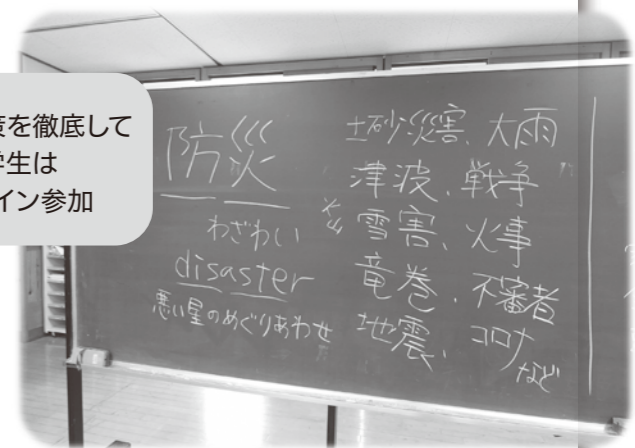 策を徹底して
学生は
イン参加
防災
わざわい
disaster
悪い星のめぐりあわせ
土砂災害、大雨
津波、戦争
雪害、火事
竜巻、不審者
地震、コロナ
など